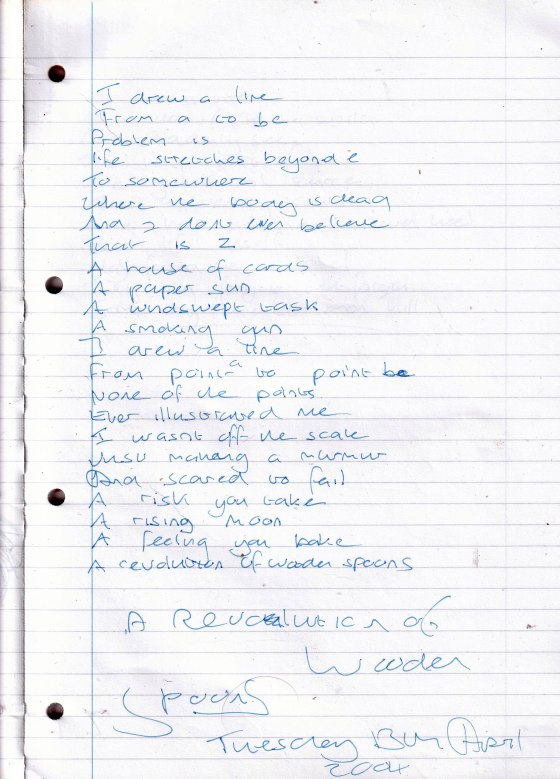 I drew a line
From a to be
Problem is
life stretches beyond e
To somewhere
Where the body is dead
And I dont even believe
That is Z
A house of cards
A paper sun
A windswept task
A smoking gun
I drew a line
From point a to point be
None of the points
Ever illustrated me
I wasnt off the scale
Just making a murmur
And scared to fail
A risk you take
A rising moon
A feeling you bake
A revolution of wooden spoons
A Revolution of
Wooden
Spoons
Tuesday 13th April
2004